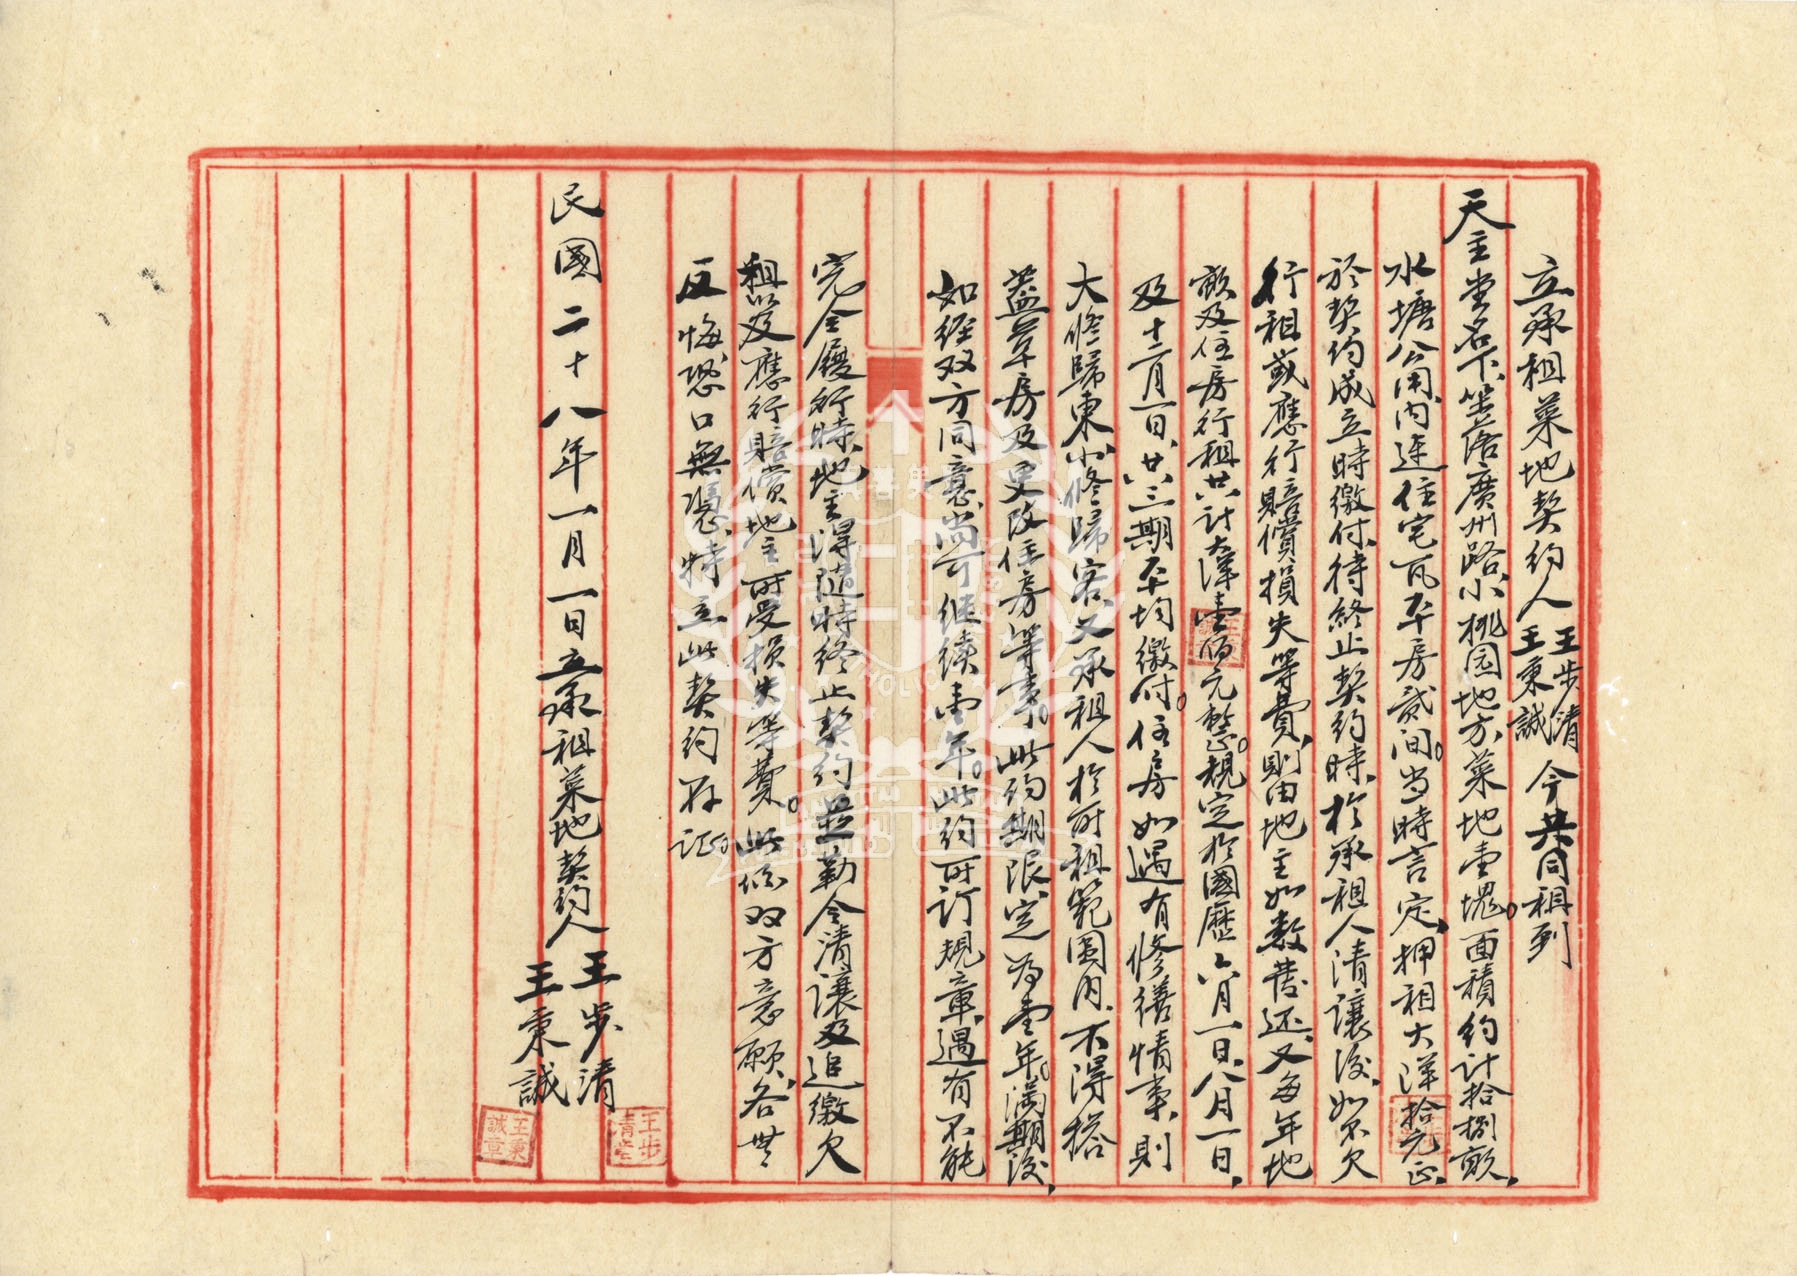 立承租菜地契约人王步清王秉誠今共同租到
天主堂名下坐落廣州路小桃园地方菜地壹塊。面積约计拾捌畝，
水塘公用，内連住宅瓦平房贰间。当時言定，押租大洋拾元正，
於契约成立時缴付，待終止契约時，於承租人清讓後，如不欠
行租或應行賠償損失等費，则由地主如数發还，又每年地
畝及住房行租共计大洋壹佰元整。規定於國歷六月一日、八月一日，
及十二月一日、共三期平均缴付。住房如遇有修繕情事，則
大修歸東，小修歸客，又承租人於所租範圍内，不得搭
蓋草房及更改住房等事。此约期限，定為壹年。满期後，
如经双方同意，尚可继续壹年。此约所订規章，遇有不能
完全履行時，地主得隨時終止契约並勒令清讓及追缴欠
租以及應行賠償地主所受損失等費。此係双方意願，各無
反悔，恐口無憑，特立此契约存证。
民國二十八年一月一日立承租菜地契约人王步清王秉誠
王步清
王秉誠章